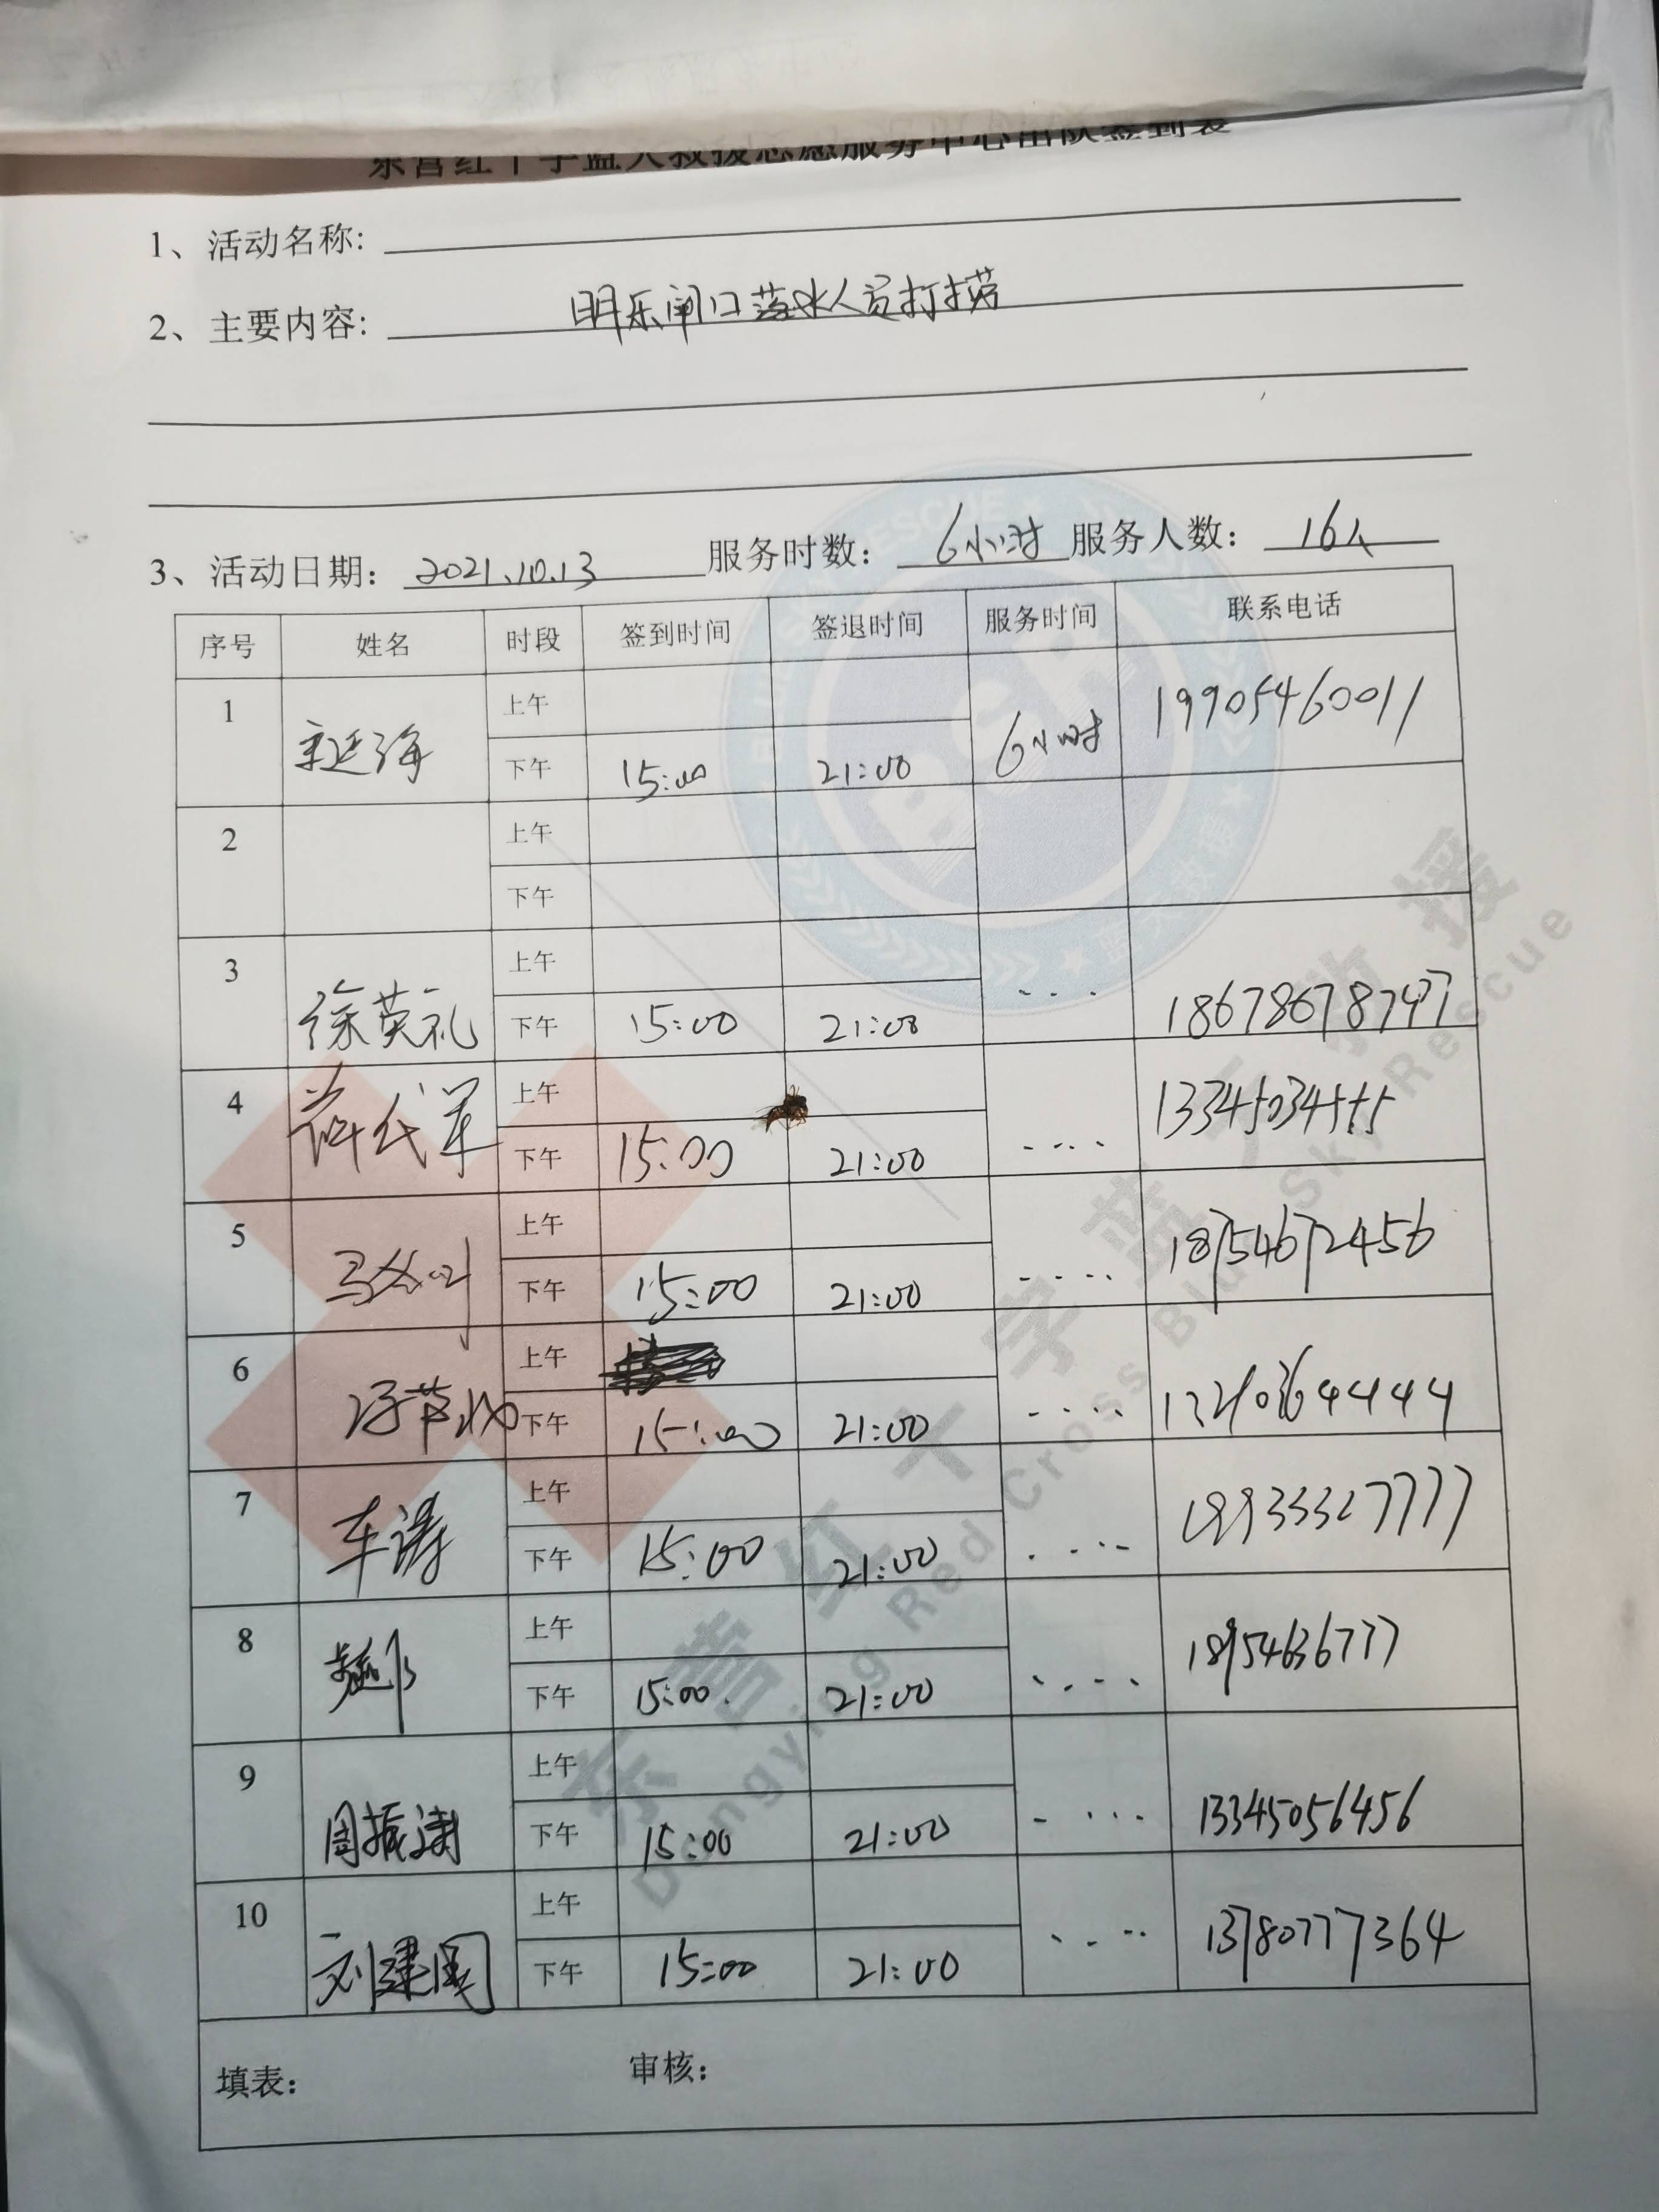 东营红十字蓝天救援志愿服务中心出队签到表
1、活动名称:
2、主要内容: 明乐闸口落水人员打捞
3、活动日期: 2021.10.13 服务时数: 6小时 服务人数: 16人
序号 姓名 时段 签到时间 签退时间 服务时间 联系电话
1 上午
下午 15:00 21:00 6小时 19905460011
2 上午
下午
3 徐英礼 上午
下午 15:00 21:00 18678678747
4 薛代军 上午
下午 15:00 21:00 13345034555
5 上午
下午 15:00 21:00 18754672456
6 上午
下午 15:00 21:00
7 车涛 上午
下午 15:00 21:00
8 上午
下午 15:00 21:00
9 周振涛 上午
下午 15:00 21:00 13345056456
10 刘建国 上午
下午 15:00 21:00 13780777364
填表: 审核:
BLUE SKY RESCUE
BSR
蓝天救援
东营红十字蓝天救援
Dongying Red Cross Blue Sky Rescue